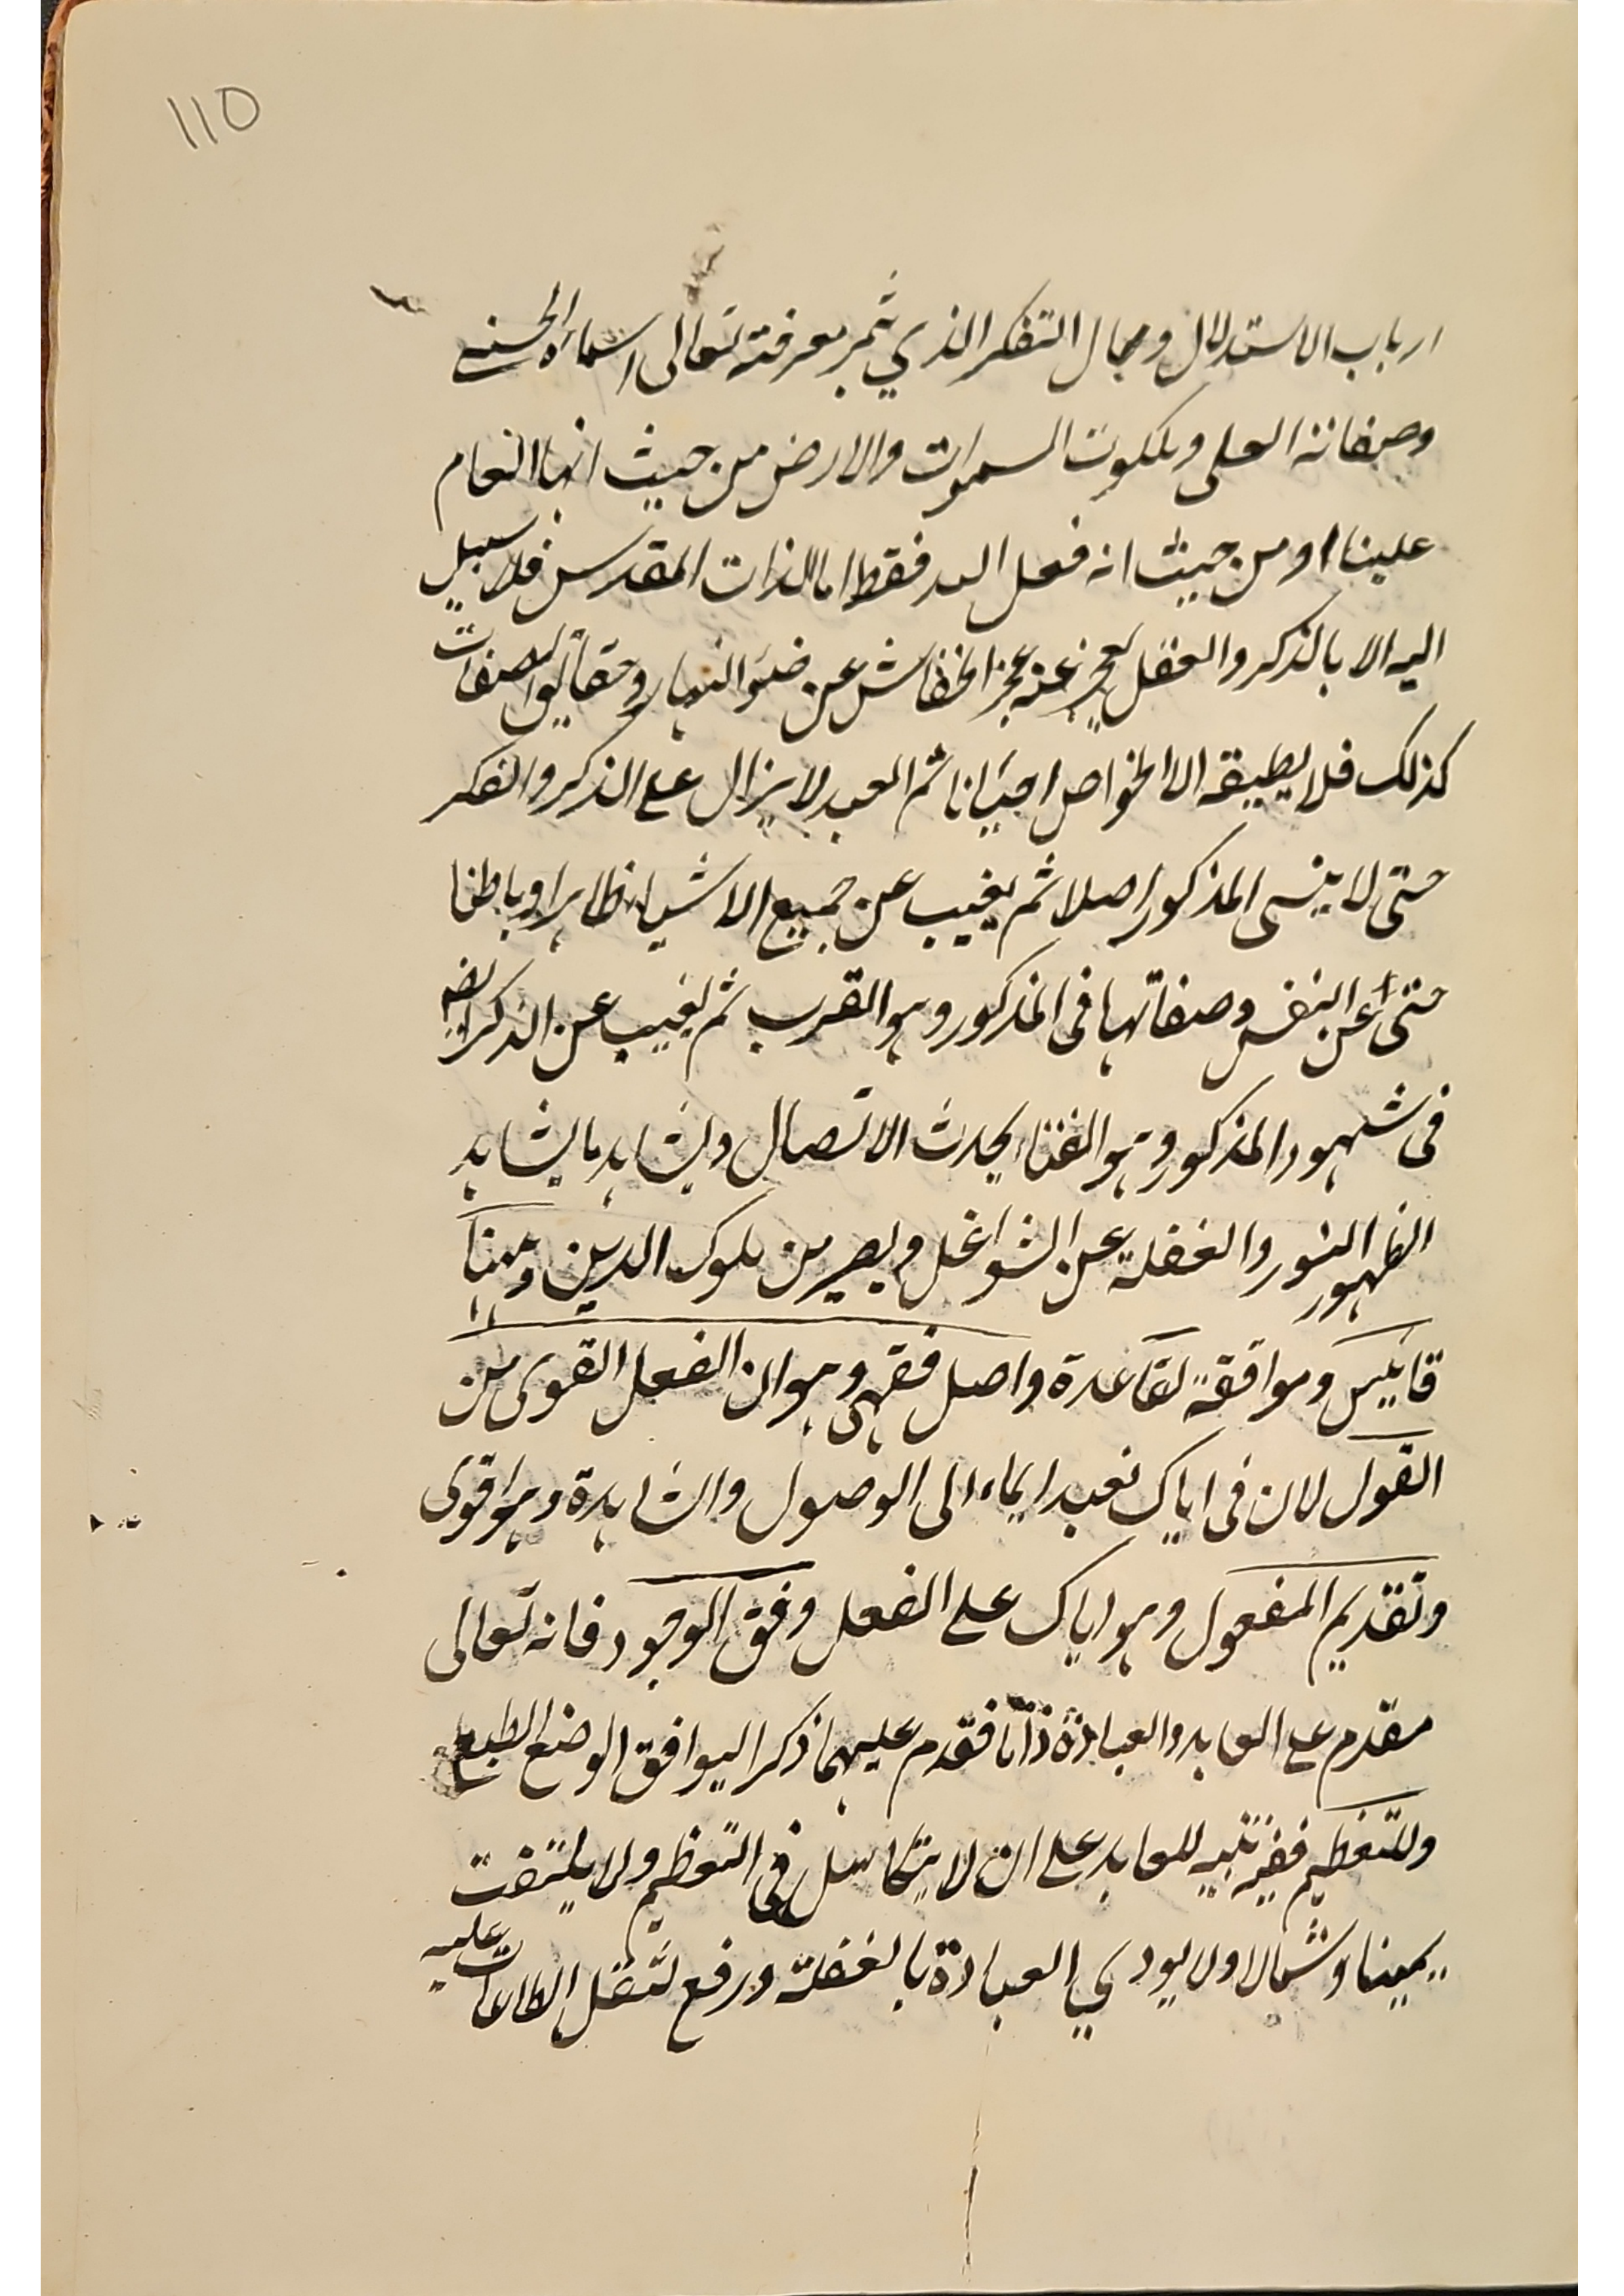 110
ارباب الاستدلال ومجال التفكر الذي يثمر معرفته تعالى اسماءه الحسنے
وصفاته العلى وملكوت السموات والارض من حيث انها انعام
علينا او من حيث انه فعل الله فقط اما الذات المقدس فلا سبيل
اليه الا بالذكر والعقل يعجز عنه عجز الخفاش عن ضوء النهار وحقايق الصفات
كذلك فلا يطيقه الا الخواص احيانا ثم العبد لا يزال على الذكر والفكر
حتى لا ينسى المذكور اصلا ثم يغيب عن جميع الاشياء ظاهرا وباطنا
حتى عن النفس وصفاتها فى المذكور وهو القرب ثم يغيب عن الذكر ايضا
فى شهود المذكور وهو الفناء يحدث الاتصال ويشاهد ما يشاهد
لظهور النور والغفلة عن الشواغل ويصير من ملوك الدين وههنا
قاييس وموافقة لقاعدة واصل فقهى وهو ان الفعل القوى من
القول لان فى اياك نعبد ايماء الى الوصول والمشاهدة وهو اقوى
وتقديم المفعول وهو اياك على الفعل وفق الوجود فانه تعالى
مقدم على العابد والعبادة ذاتا فقدم عليهما ذكرا ليوافق الوضع الطبع
وللتعظيم ففيه تنبيه للعابد على ان لا يتكاسل فى التعظيم ولا يلتفت
يمينا وشمالا ولا يودي العبادة بالغفلة ورفع لثقل الطاعات عليه